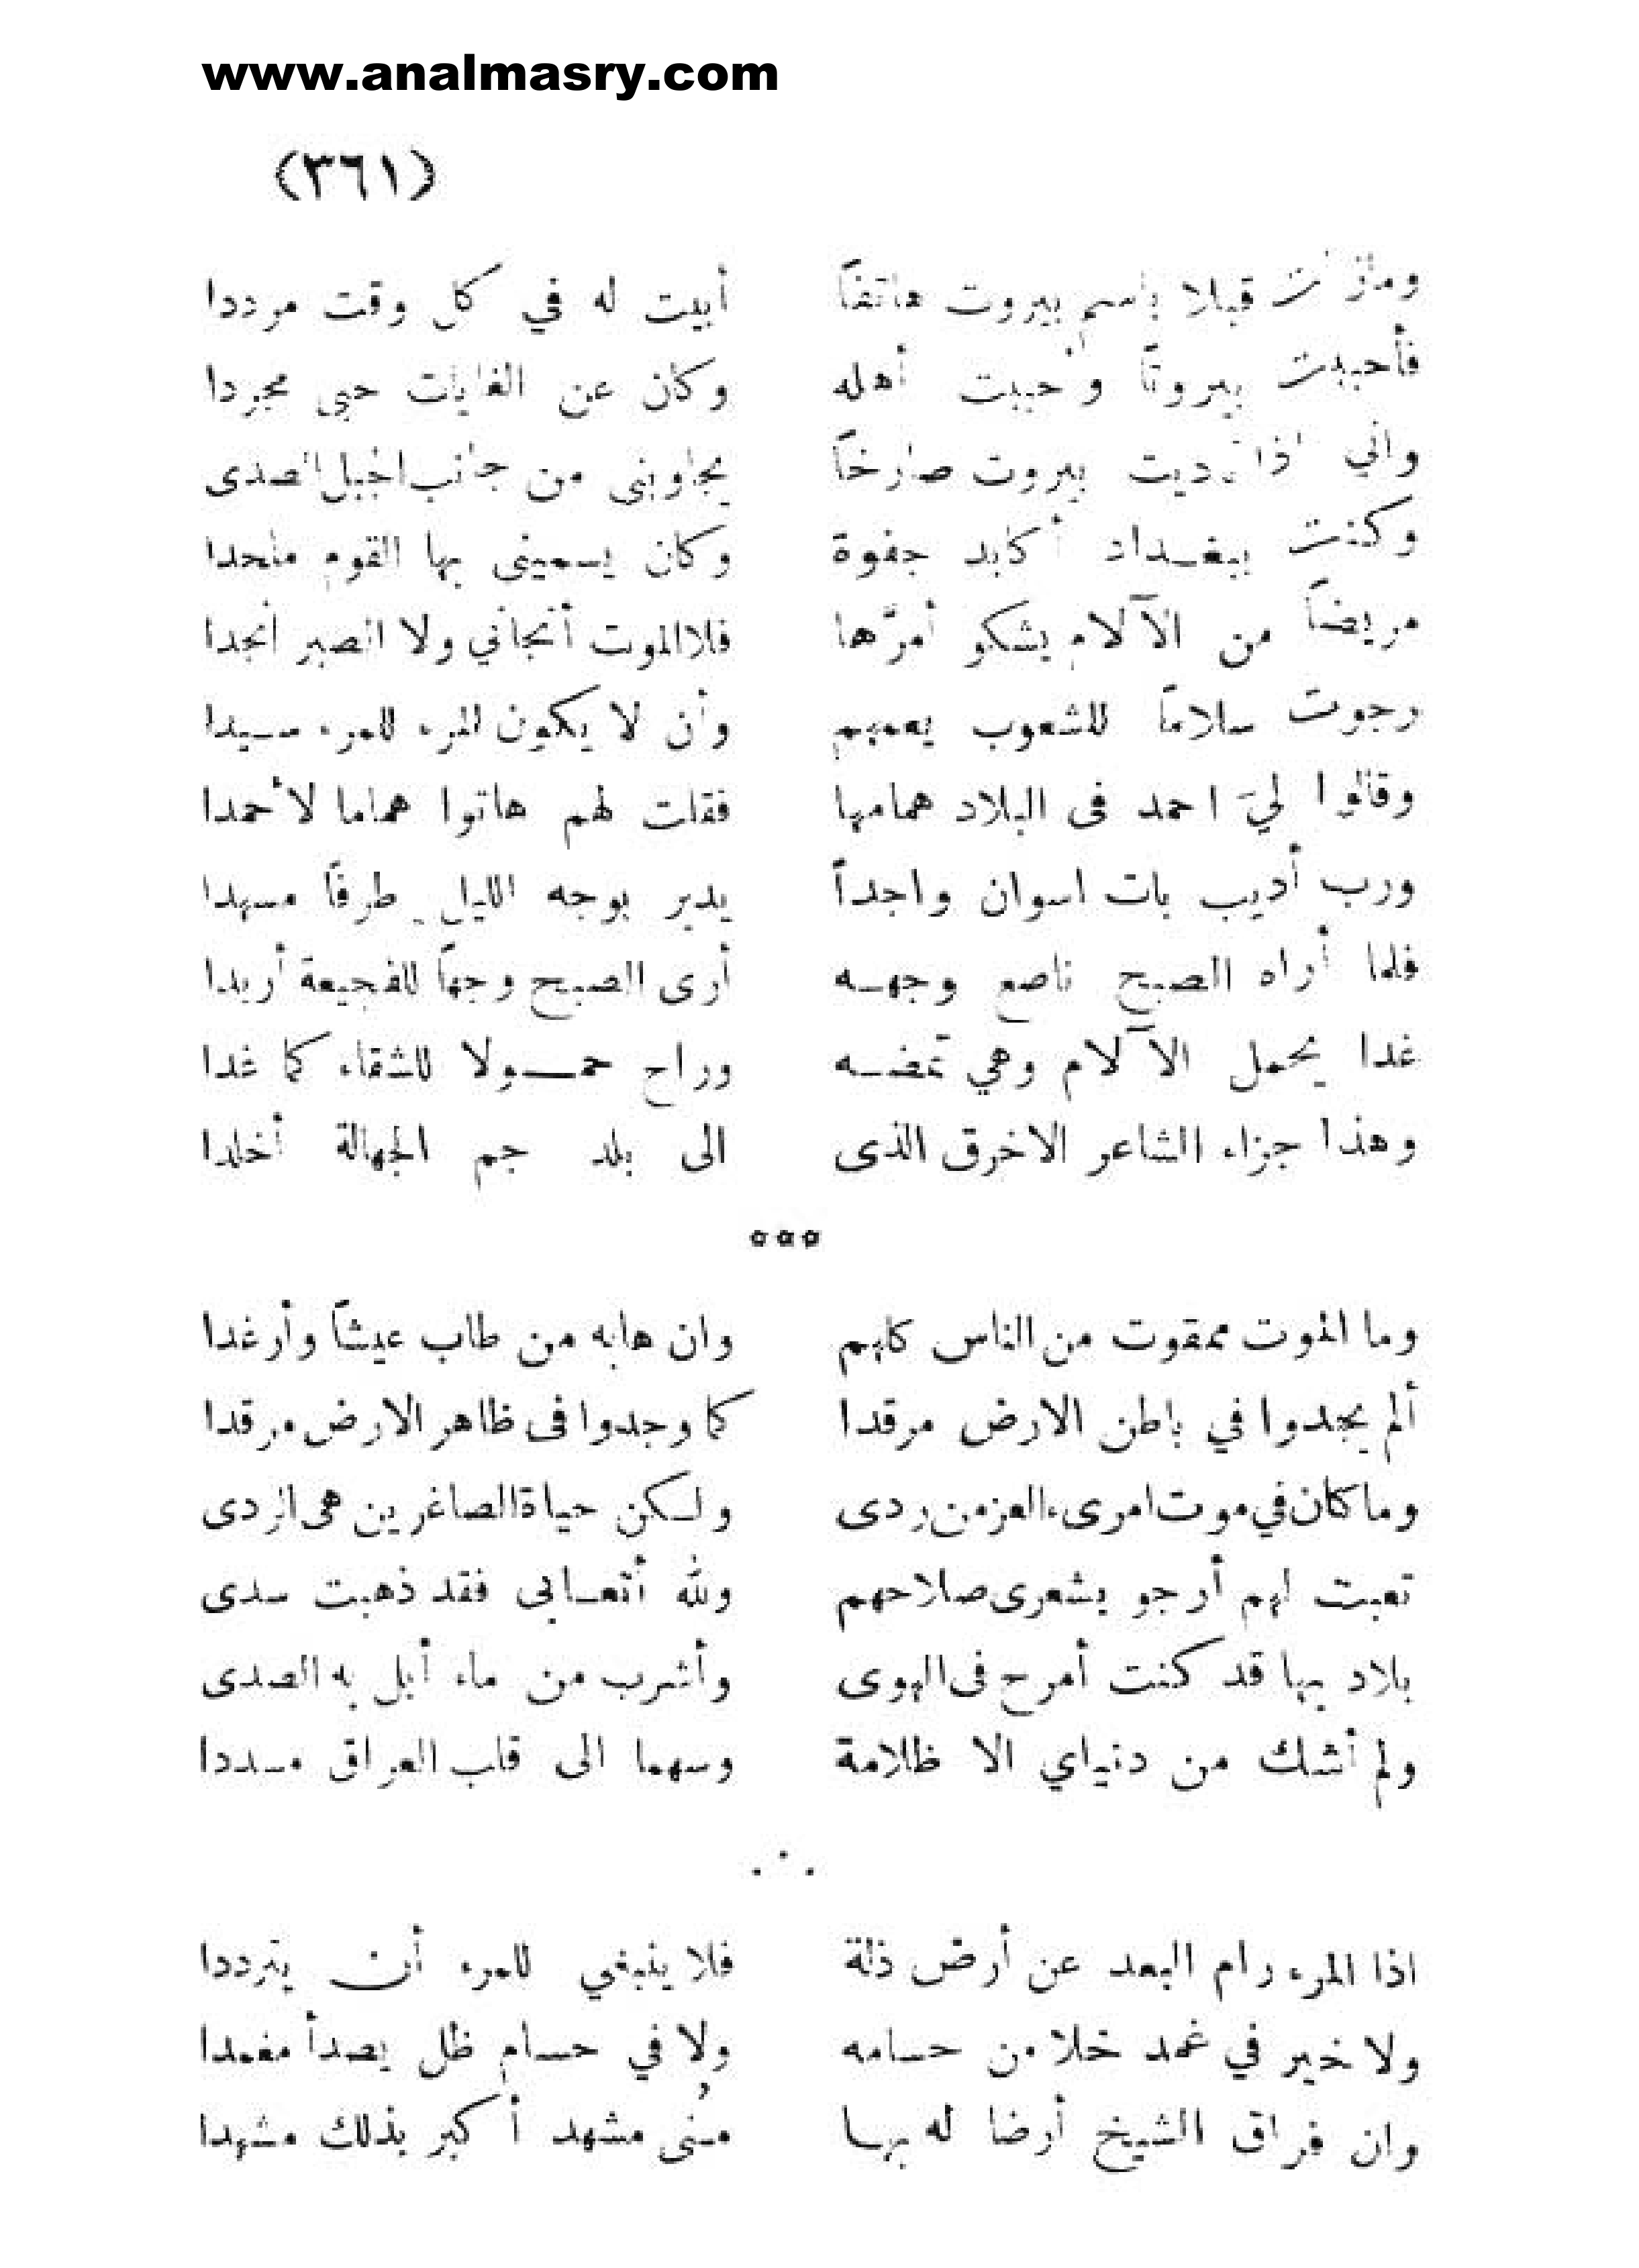 www.analmasry.com
(٣٦١)
ومازلت قبلا باسم بيروت هاتفاً أبيت له في كل وقت مرددا
فأحببت بيروتاً وأحببت أهله وكان عن الغايات حبى مجردا
واني اذا ناديت بيروت صارخاً يجاوبنى من جانب الجبل الصدى
وكنت ببغداد أكابد جفوة وكان يسمينى بها القوم ملحدا
مريضاً من الآلام يشكو أمرَّها فلا الموت أنجاني ولا الصبر أنجدا
رجوت سلاماً للشعوب يعمهم وأن لا يكون المرء للمرء سيدا
وقالوا لي احمد فى البلاد همامها فقلت لهم هاتوا هماما لأحمدا
ورب أديب بات اسوان واجداً يدير بوجه الليل طرفاً مسهدا
فلما أراه الصبح ناصع وجهه أرى الصبح وجهاً للفجيعة أربدا
غدا يحمل الآلام وهي تمضه وراح حمولا للشقاء كما غدا
وهذا جزاء الشاعر الاخرق الذى الى بلد جم الجهالة أخلدا
***
وما الموت ممقوت من الناس كلهم وان هابه من طاب عيشاً وأرغدا
ألم يجدوا في باطن الارض مرقدا كما وجدوا فى ظاهر الارض مرقدا
وما كان في موت امرىء العز من ردى ولكن حياة الصاغرين هى الردى
تعبت لهم أرجو بشعرى صلاحهم ولله أتعابى فقد ذهبت سدى
بلاد بها قد كنت أمرح فى الهوى وأشرب من ماء أبل به الصدى
ولم أشك من دنياي الا ظلامة وسهما الى قلب العراق مسددا
. · .
اذا المرء رام البعد عن أرض ذلة فلا ينبغي للمرء أن يترددا
ولا خير في غمد خلا من حسامه ولا في حسام ظل يصدأ مغمدا
وان فراق الشيخ أرضا له بها مُنى مشهد أكبر بذلك مشهدا